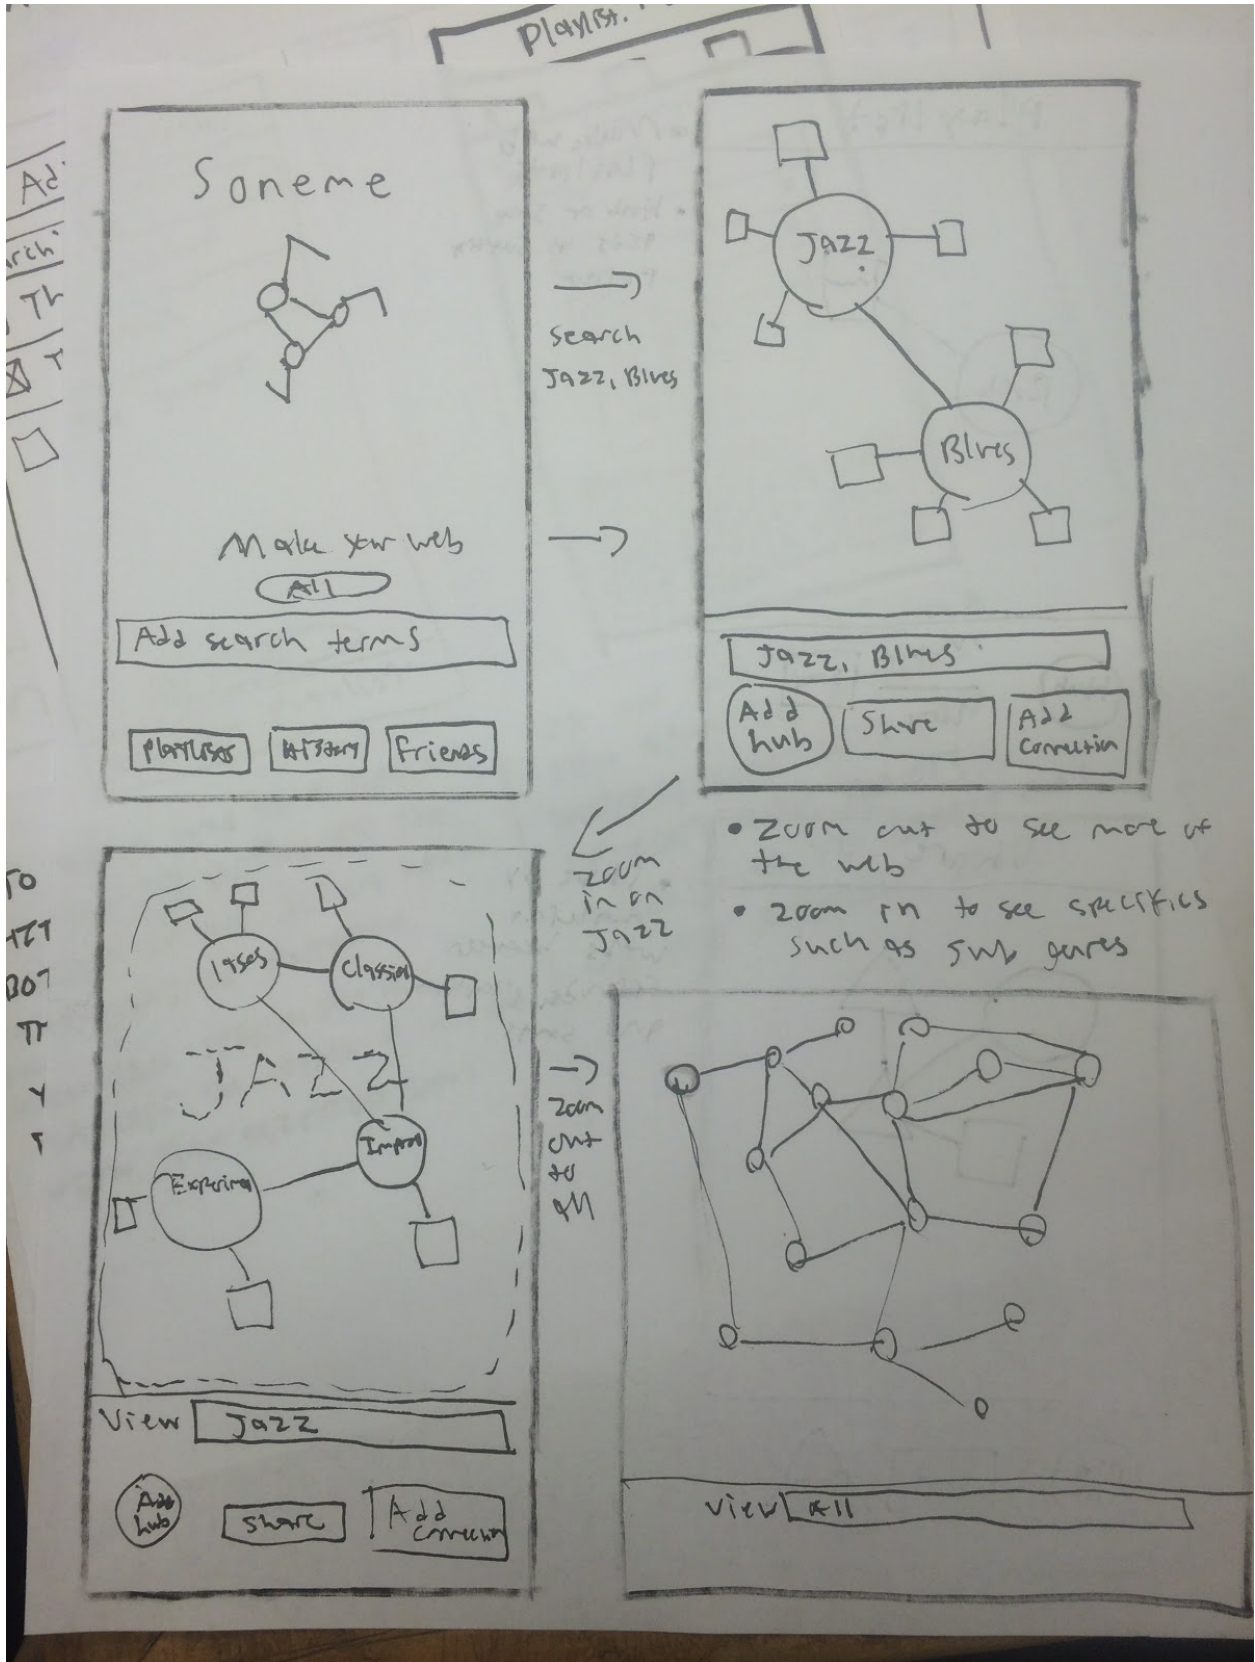 Playlist.
Soneme
Make your web
All
Add search terms
Playlists
History
Friends
search
Jazz, Blues
Jazz
Blues
Jazz, Blues
Add
hub
Share
Add
Connection
• Zoom out to see more of
the web
• Zoom in to see specifics
such as sub genres
zoom
in on
Jazz
Classical
JAZZ
Improv
Experim
View
Jazz
Add
hub
Share
Add
Connection
Zoom
out
to
all
View
All
Ad
rch
Th
Y
TO
BOT